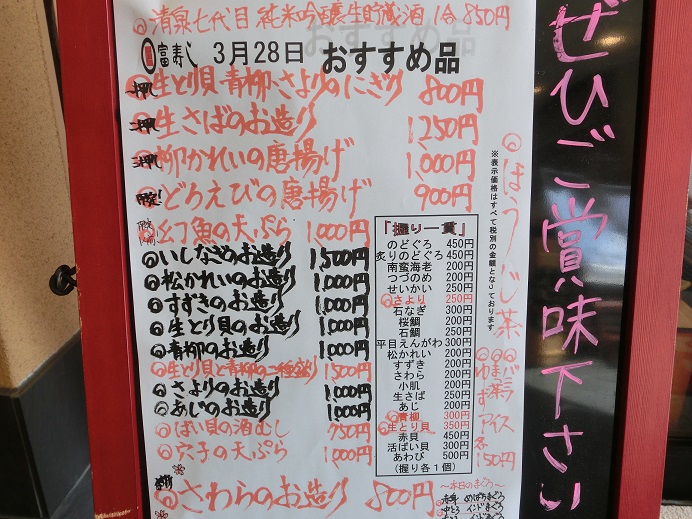 清泉七代目 純米吟醸生貯蔵酒 1合 850円
富寿し 3月28日 おすすめ品
一押 生とり貝・青柳・さよりのにぎり 800円
二押 生さばのお造り 1,250円
三押 柳かれいの唐揚げ 1,000円
どろえびの唐揚げ 900円
幻魚の天ぷら 1,000円
いしなぎのお造り 1,500円
松かれいのお造り 1,000円
すずきのお造り 1,000円
生とり貝のお造り 1,000円
青柳のお造り 1,000円
生とり貝と青柳の二種盛り 1,500円
さよりのお造り 1,000円
あじのお造り 1,000円
ばい貝の酒むし 750円
穴子の天ぷら 1,000円
さわらのお造り 800円
「握り一貫」
のどぐろ 450円
炙りのどぐろ 450円
南蛮海老 200円
つづのめ 200円
せいかい 250円
さより 250円
石なぎ 300円
桜鯛 200円
石鯛 250円
平目えんがわ 300円
松かれい 200円
すずき 200円
さわら 200円
小肌 200円
生さば 250円
あじ 200円
青柳 300円
生とり貝 350円
赤貝 450円
活ばい貝 300円
あわび 500円
(握り各1個)
～本日のまぐろ～
赤身 めばちまぐろ
中とろ インドまぐろ
インドまぐろ
※表示価格はすべて税別の金額となっております。
ほうじ茶
バニラ
まっ茶
ゆず
アイス
各150円
ぜひご賞味下さい